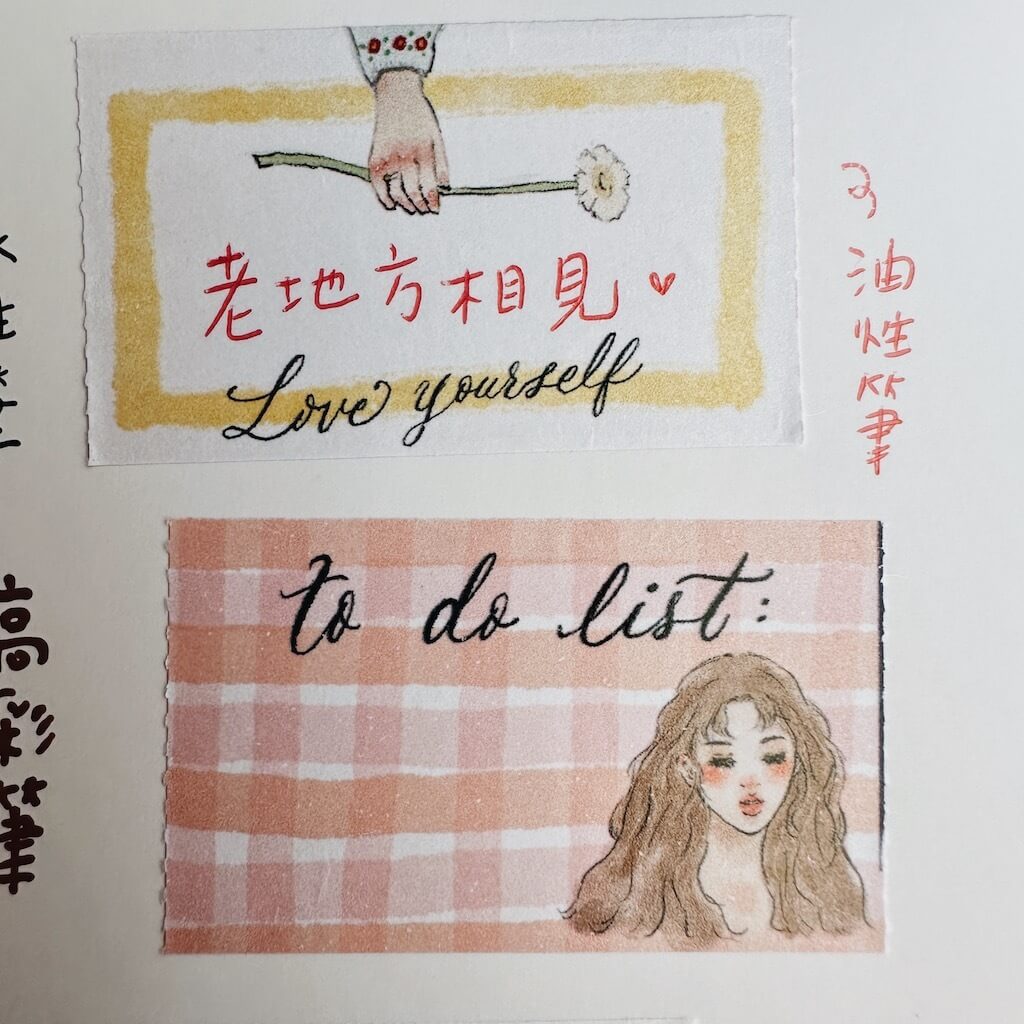 老地方相見
Love yourself
油性筆
to do list: